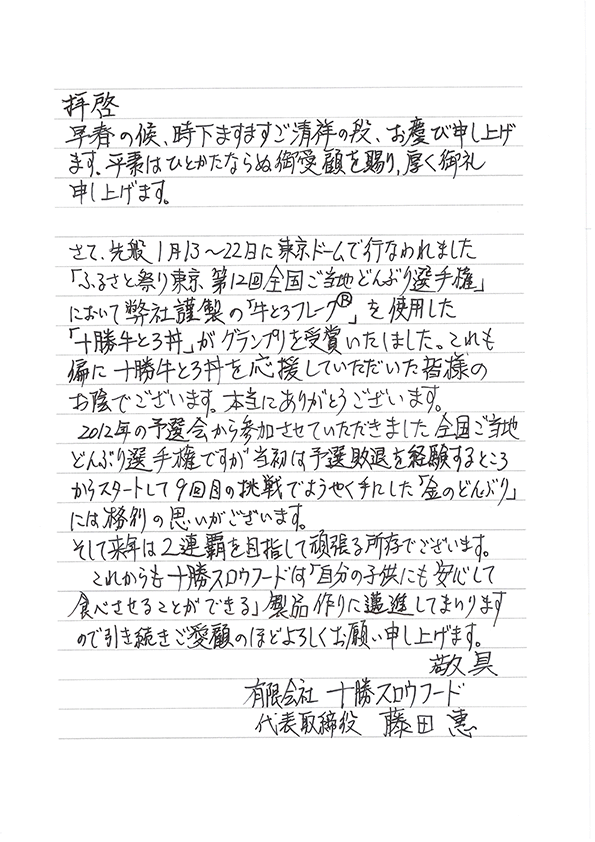 拝啓
早春の候、時下ますますご清祥の段、お慶び申し上げ
ます。平素はひとかたならぬ御愛顧を賜り、厚く御礼
申し上げます。
さて、先般1月13～22日に東京ドームで行なわれました
「ふるさと祭り東京 第12回全国ご当地どんぶり選手権」
において弊社謹製の「牛とろフレーク®」を使用した
「十勝牛とろ丼」がグランプリを受賞いたしました。これも
偏に十勝牛とろ丼を応援していただいた皆様の
お陰でございます。本当にありがとうございます。
2012年の予選会から参加させていただきました全国ご当地
どんぶり選手権ですが当初は予選敗退を経験するところ
からスタートして9回目の挑戦でようやく手にした「金のどんぶり」
には格別の思いがございます。
そして来年は2連覇を目指して頑張る所存でございます。
これからも十勝スロウフードは「自分の子供にも安心して
食べさせることができる」製品作りに邁進してまいります
ので引き続きご愛顧のほどよろしくお願い申し上げます。
敬具
有限会社 十勝スロウフード
代表取締役 藤田 惠